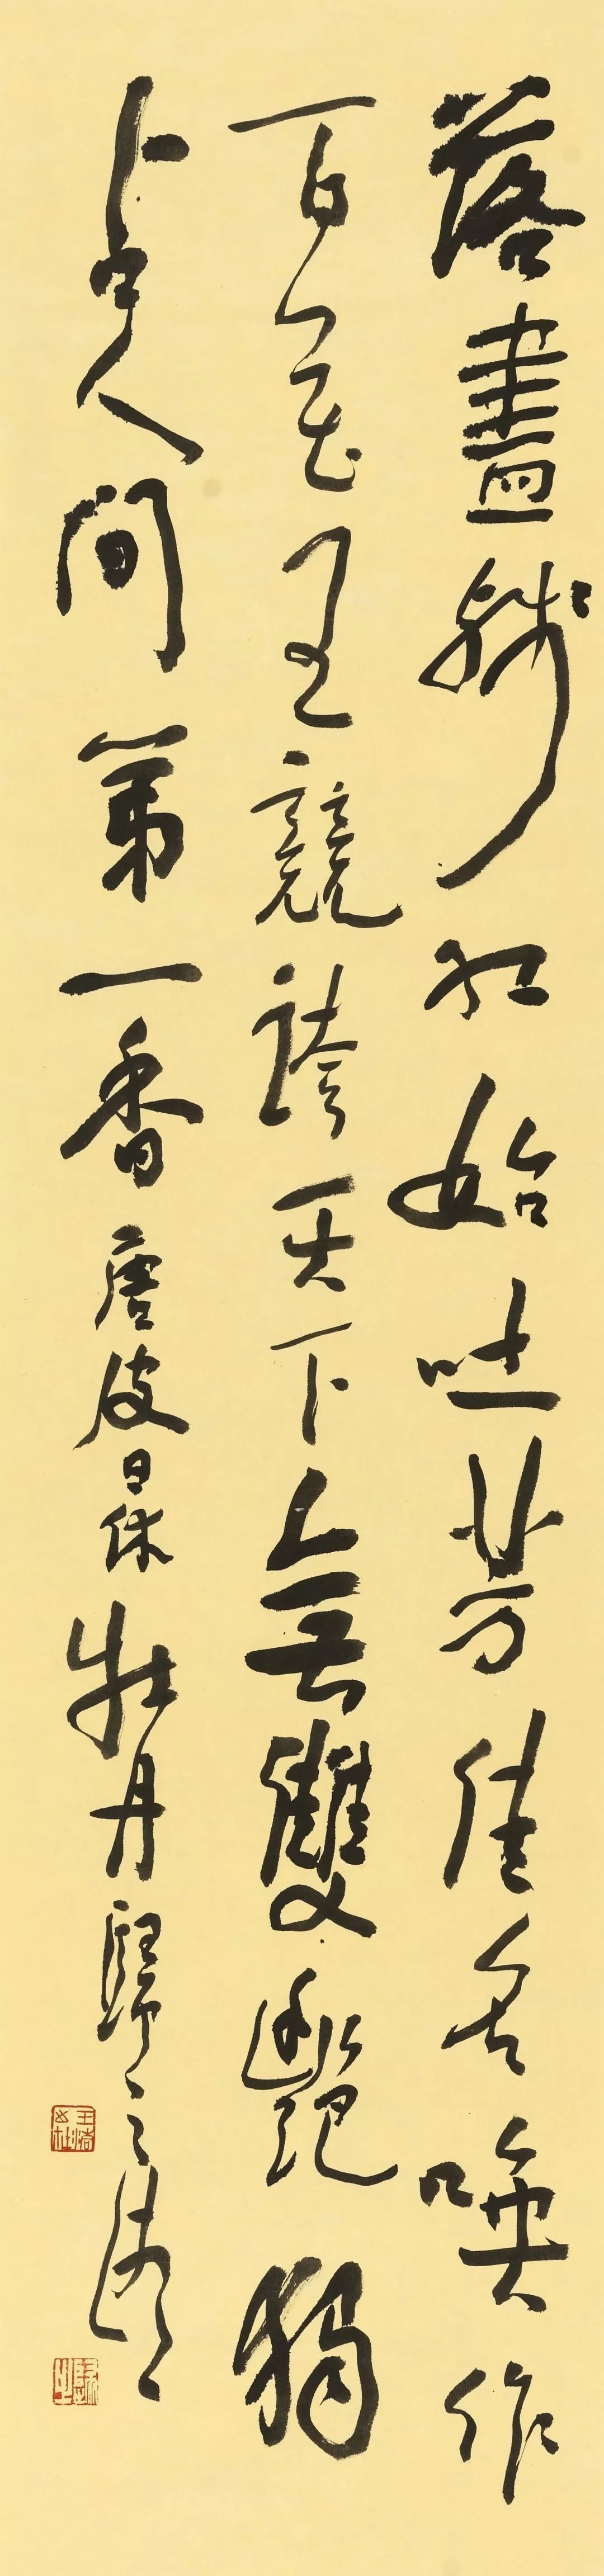 落盡殘紅始吐芳佳名喚作
百花王競誇天下無雙艷獨
占人間第一香唐皮日休牡丹歸之濤